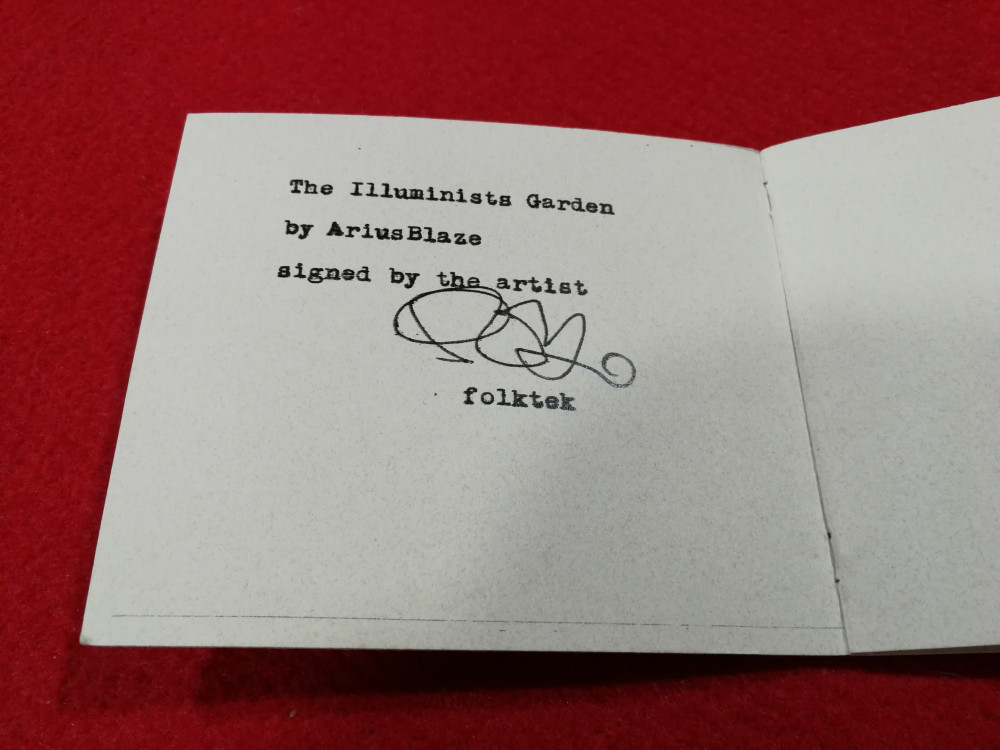 The Illuminists Garden
by AriusBlaze
signed by the artist
folktek